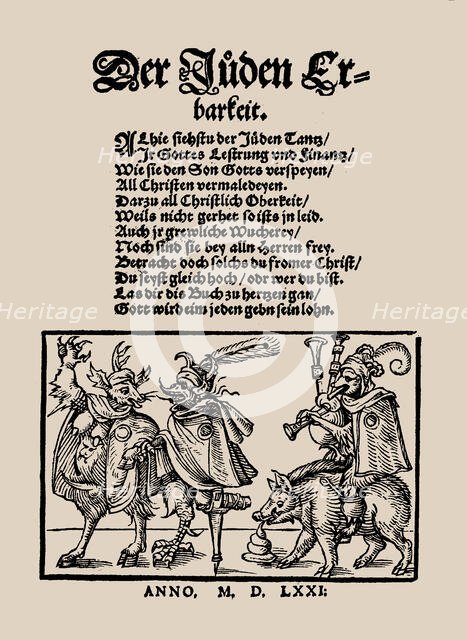 Der Jůden Er-
barkeit.
ALhie siehstu der Jůden Tantz/
Jr Gottes Lestrung vnd Finantz/
Wie sie den Son Gotts verspeyen/
All Christen vermaledeyen.
Darzu all Christlich Oberkeit/
Weils nicht gerhet so ists jn leid.
Auch jr grewliche Wucherey/
Noch sind sie bey alln Herren frey.
Betracht doch solchs du fromer Christ/
Du seyst gleich hoch/ odr wer du bist.
Las dir dis Buch zu hertzen gan/
Gott wird eim jeden gebn sein lohn.
ANNO, M, D, LXXI:
heritage
Heritage
Heritage
heritage
images